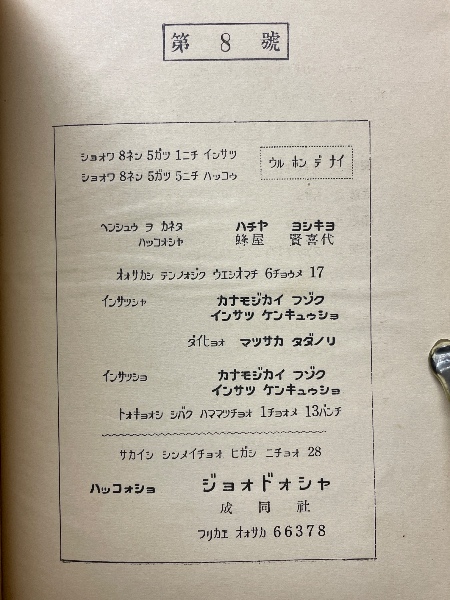 第 8 號
ショオワ 8ネン 5ガツ 1ニチ インサツ
ショオワ 8ネン 5ガツ 5ニチ ハッコゥ
ウル ホン デ ナイ
ヘンシュウ ヲ カネタ ハチヤ ヨシキヨ
ハッコオシャ 蜂屋 賢喜代
オオサカシ テンノオジク ウエシオマチ 6チョウメ 17
インサッシャ カナモジカイ フゾク
インサツ ケンキュゥショ
ダイヒョオ マツサカ タダノリ
インサッショ カナモジカイ フゾク
インサツ ケンキュゥショ
トオキョオシ シバク ハママツチョオ 1チョオメ 13バンチ
サカイシ シンメイチョオ ヒガシ ニチョオ 28
ハッコォショ ジョォドォシャ
成同社
フリカエ オオサカ 66378